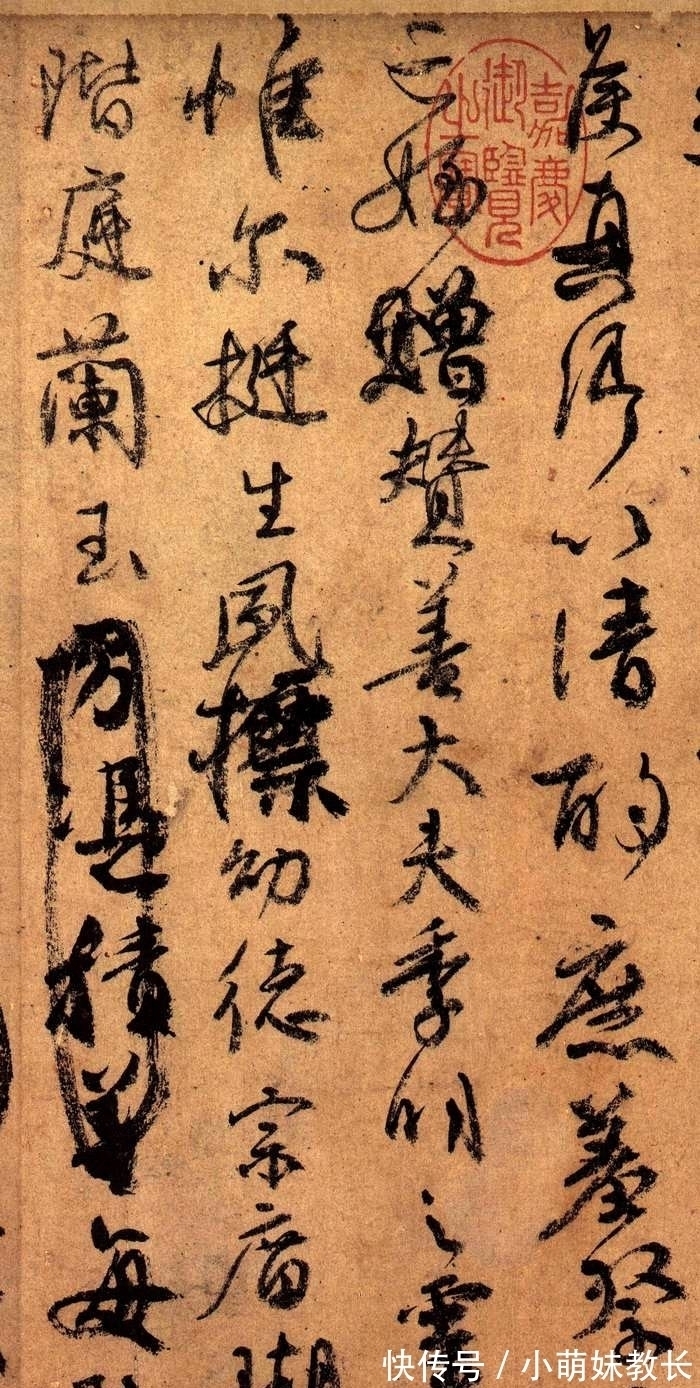 侯真卿以清酌庶羞祭
亡姪贈贊善大夫季明之靈
惟尔挺生夙標幼德宗廟瑚
階庭蘭玉方憑積善每
嘉慶御覽之寶
快传号 / 小萌妹教长